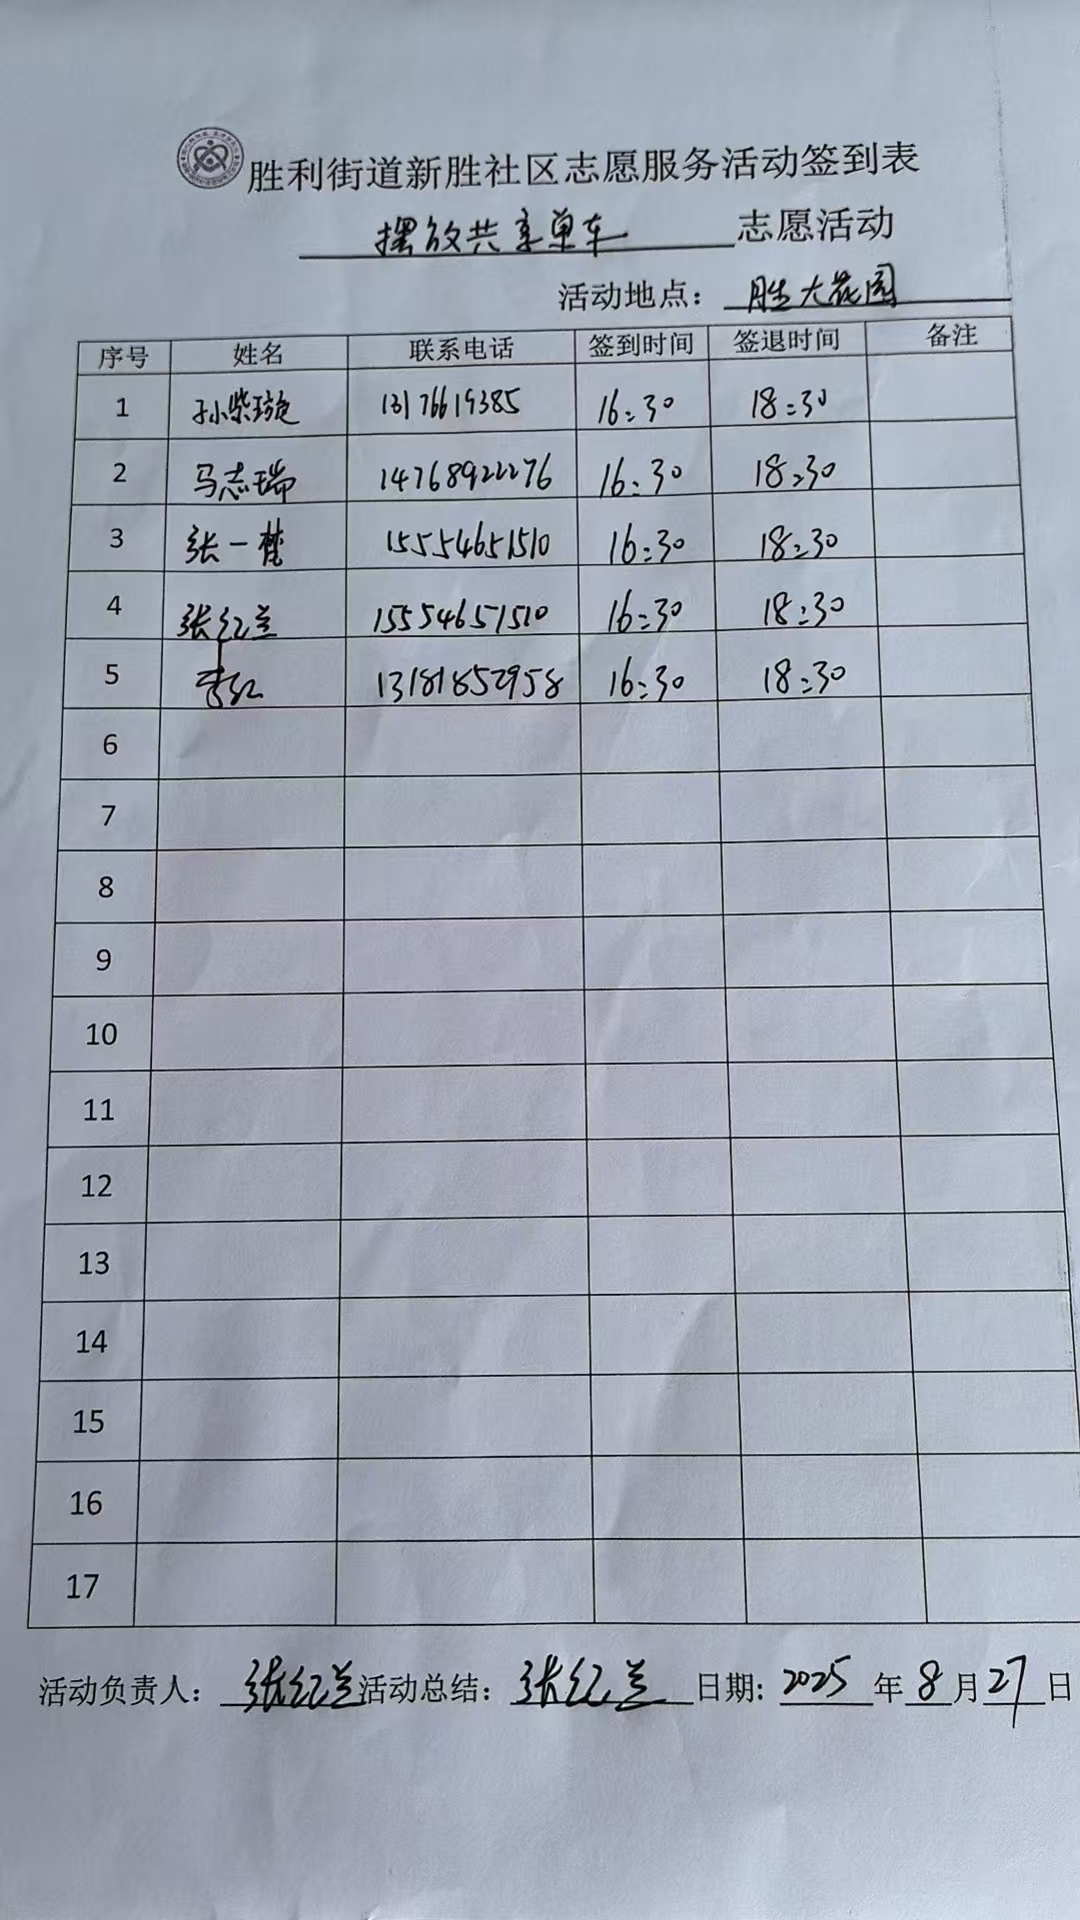 胜利街道新胜社区志愿服务活动签到表
摆放共享单车 志愿活动
活动地点： 胜大花园
序号 姓名 联系电话 签到时间 签退时间 备注
1 孙紫璇 13176619385 16:30 18:30
2 马志瑞 14768922276 16:30 18:30
3 张一楚 15554651510 16:30 18:30
4 张红兰 15554651510 16:30 18:30
5 李红 13181852958 16:30 18:30
6
7
8
9
10
11
12
13
14
15
16
17
活动负责人： 张红兰 活动总结： 张红兰 日期: 2025 年 8 月 27 日